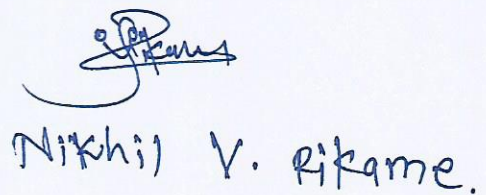 Nikhil V. Rikame.